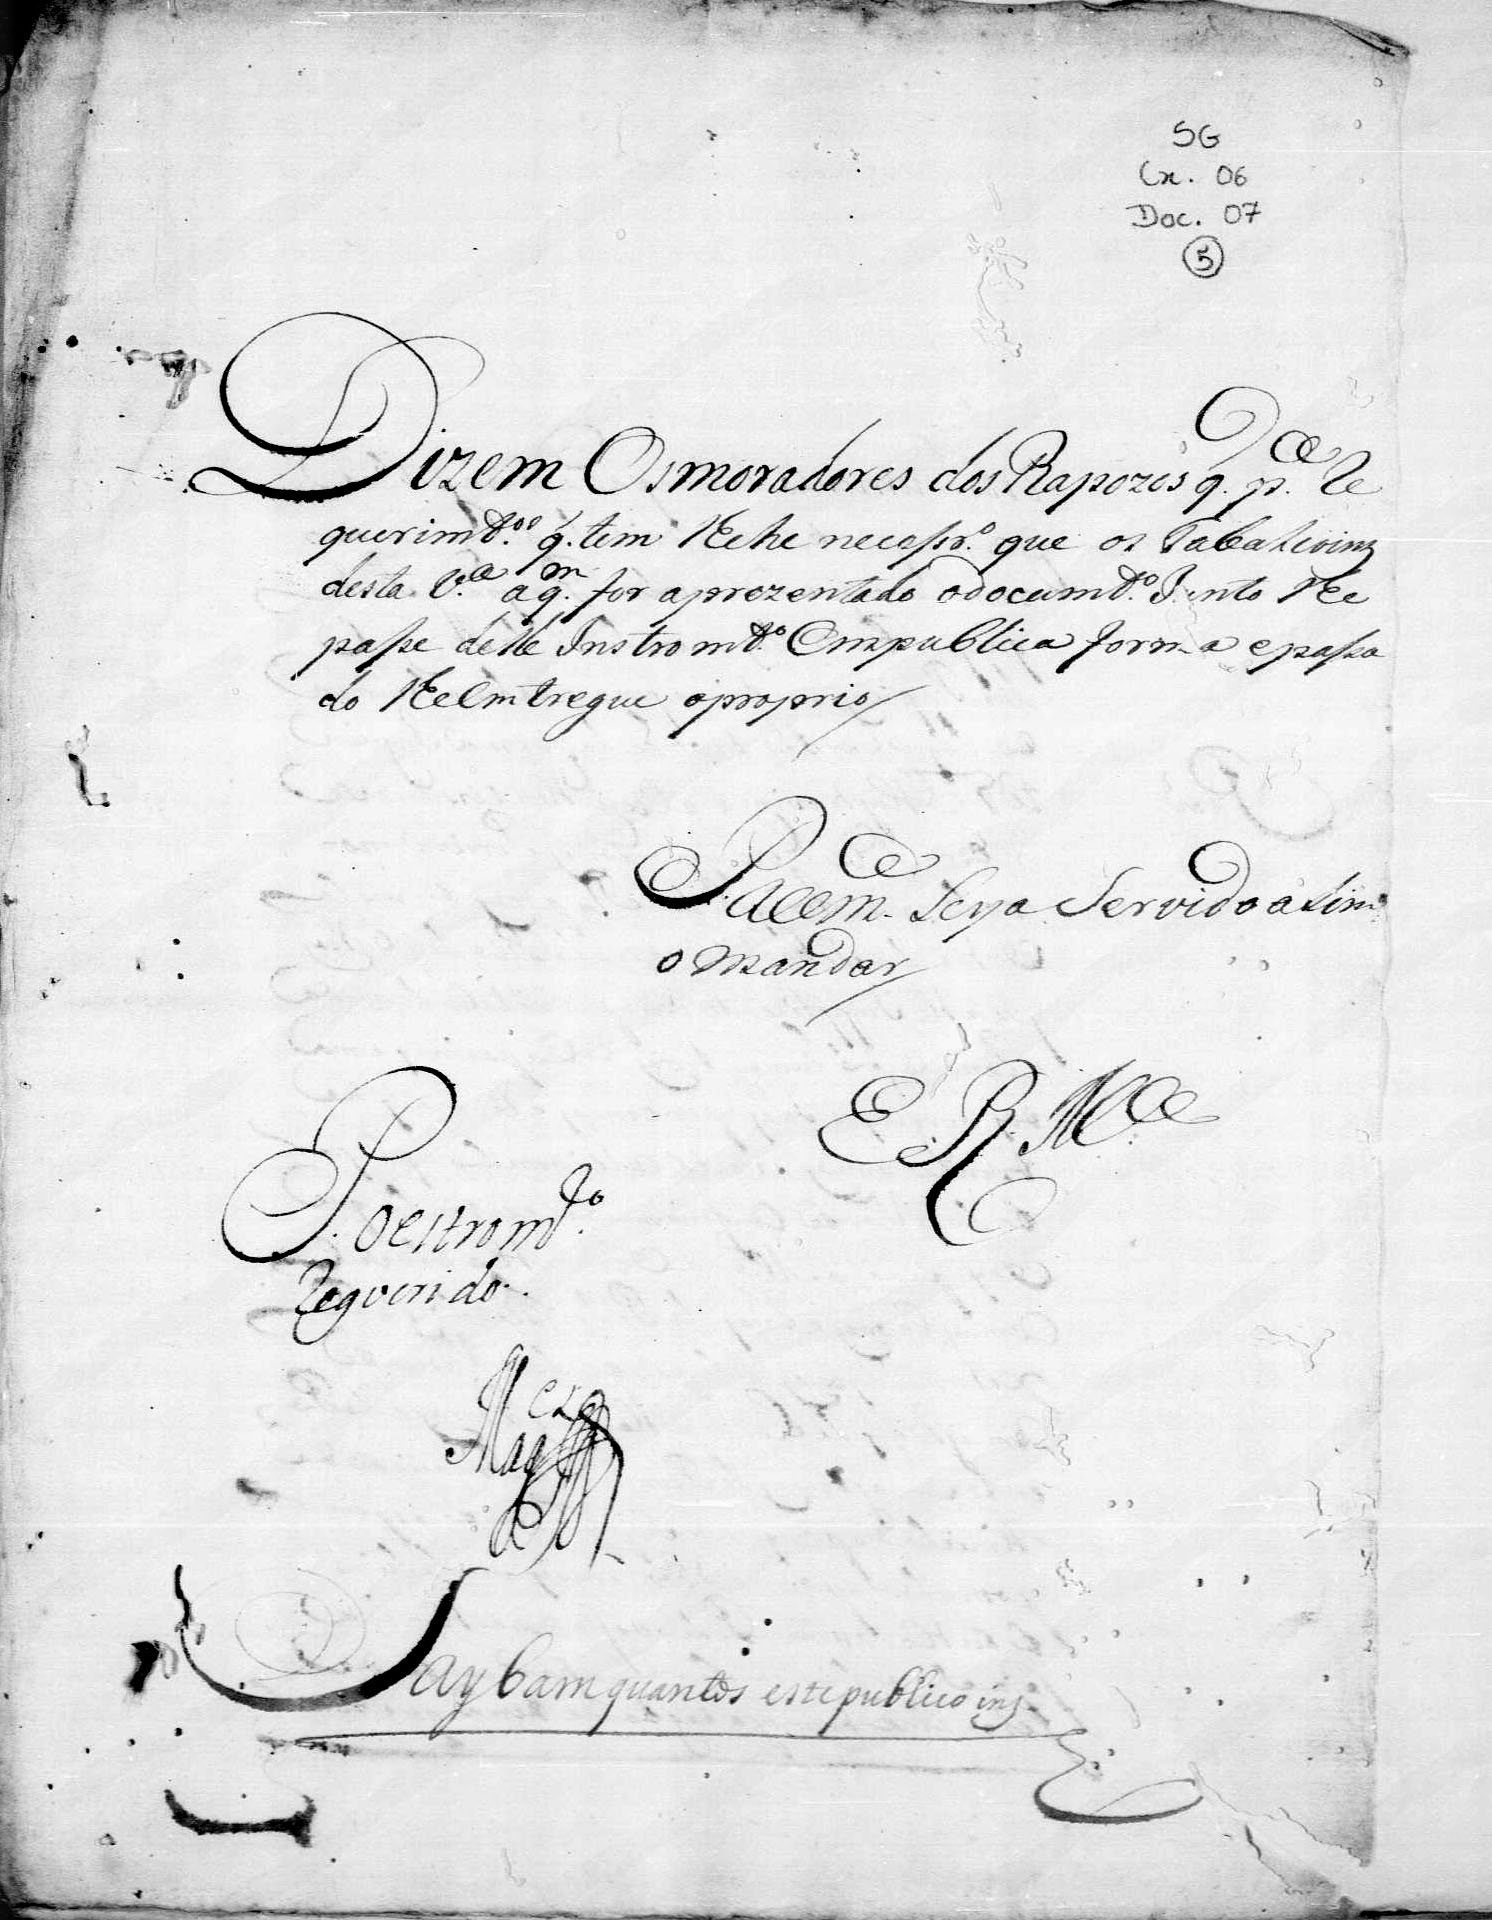 SG
Cx. 06
Doc. 07
5
Dizem Os moradores dos Rapozos q. p.ª Re
querimt.ºs q. tem lhe he necessr.º que os Tabalioins
desta V.ª a q.m for aprezentado o documt.º Junto lhe
passe delle Instromt.º Em publica forma e passa
do lhe Emtregue o proprio
P. a Vm.ce Seja Servido asim
o mandar
E. R. M.ce
P. o estromt.º
Requerido.
Saybam quantos este publico ins